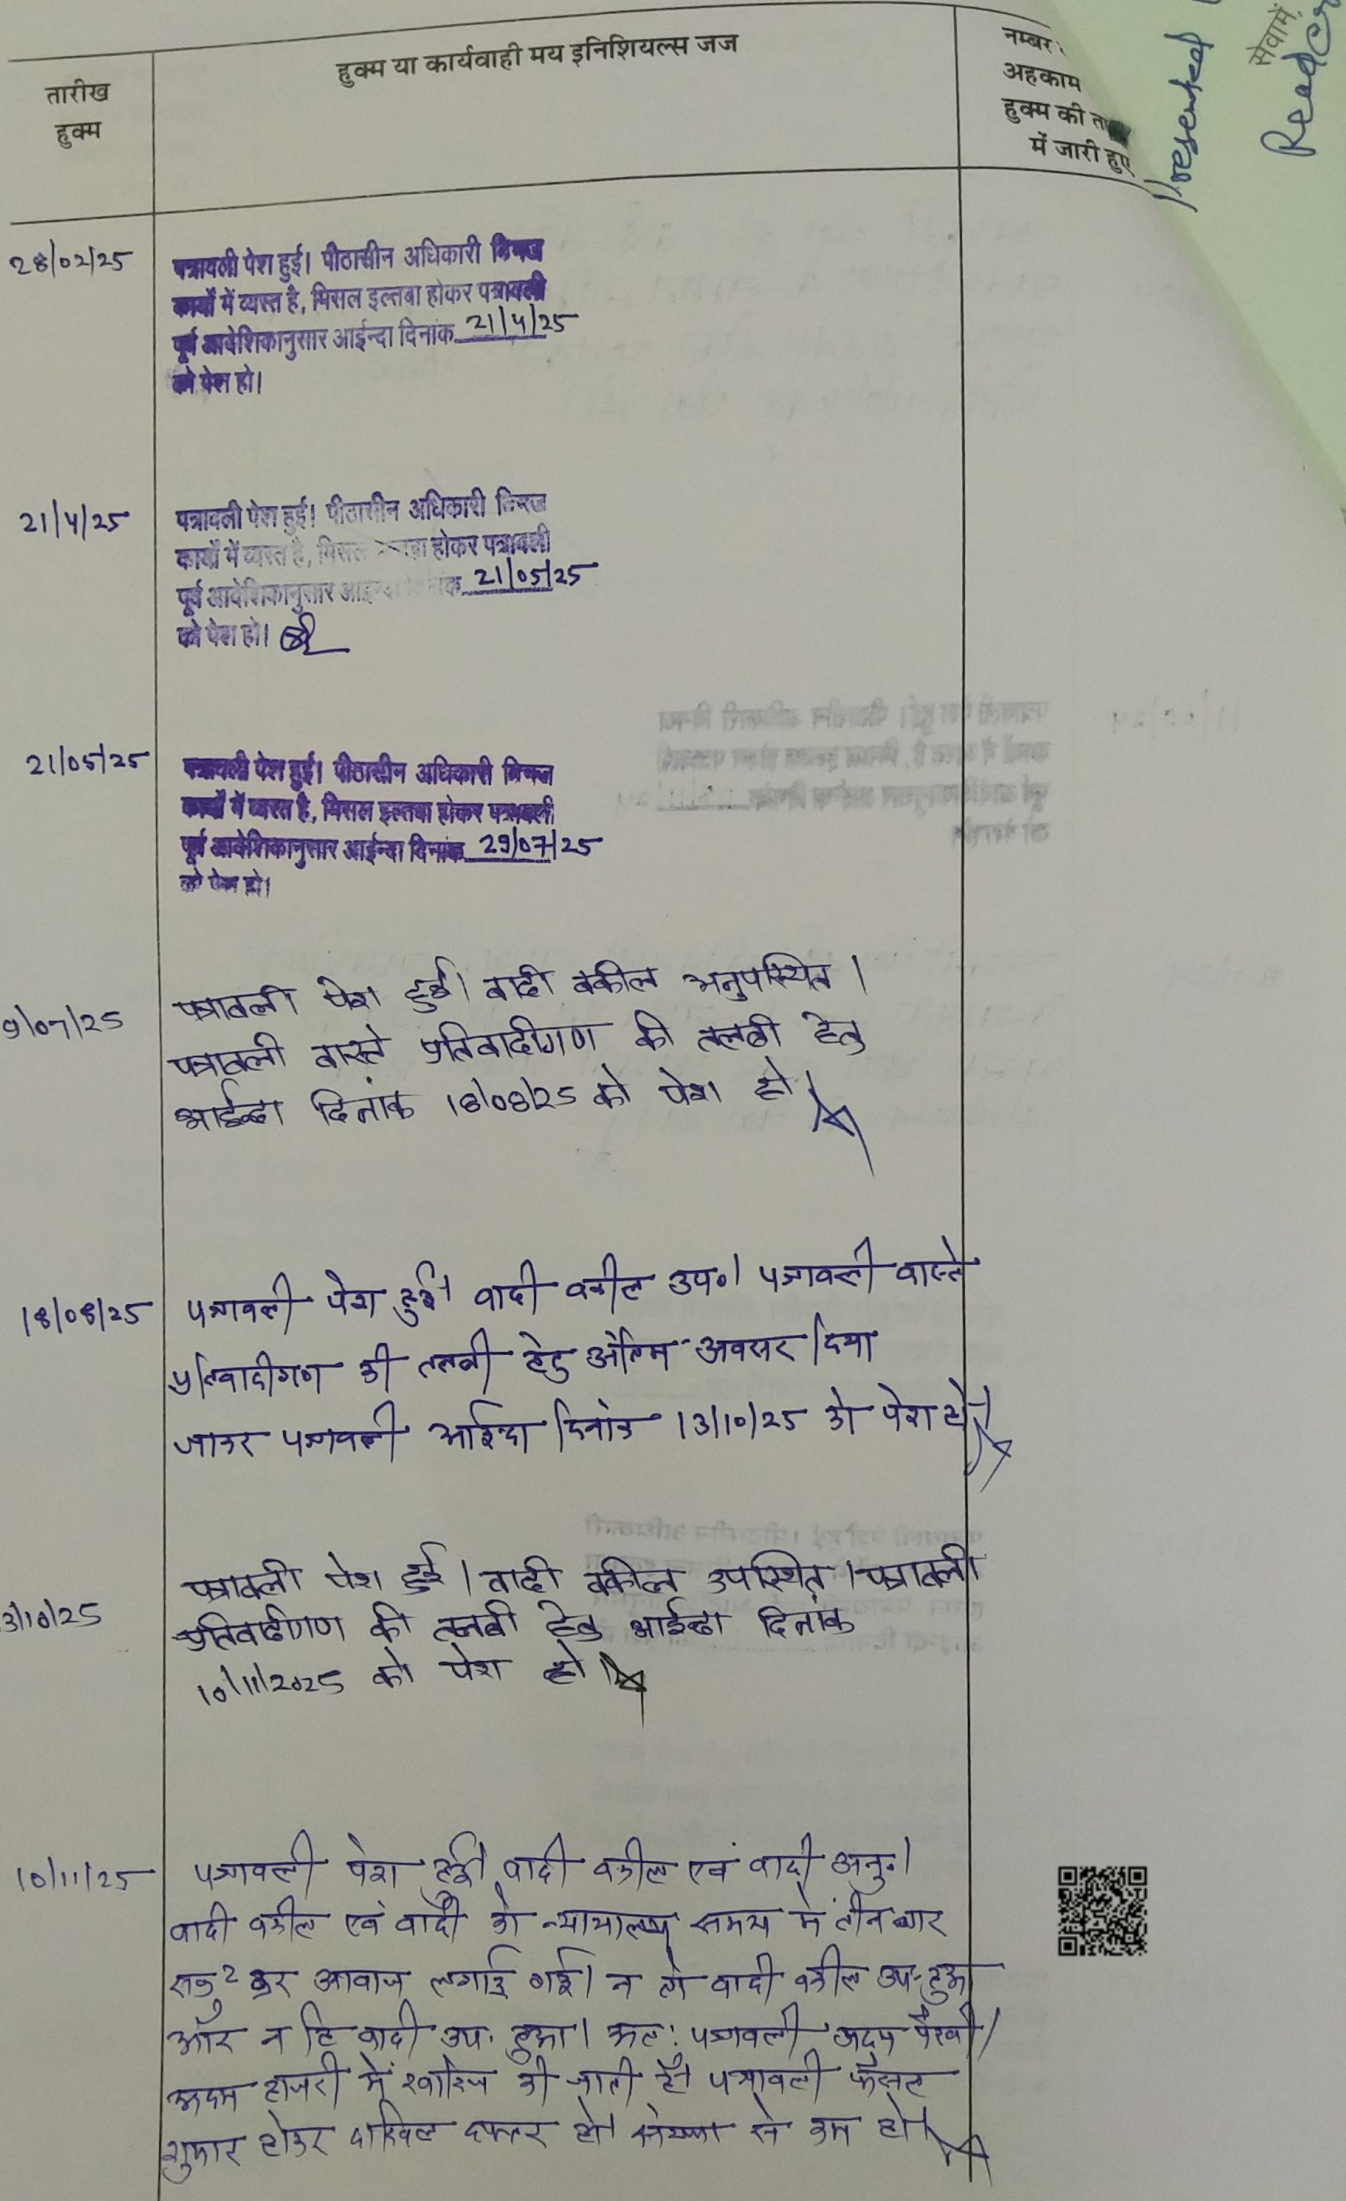 तारीख
हुक्म
हुक्म या कार्यवाही मय इनिशियल्स जज
नम्बर
अहकाम
हुक्म की ता
में जारी हुए
Presented
सेवामें
Reader
28/02/25
पत्रावली पेश हुई। पीठासीन अधिकारी
कार्यों में व्यस्त है, मिसल इल्तबा होकर पत्रावली
पूर्व आदेशिकानुसार आईन्दा दिनांक 21/4/25
को पेश हो।
21/4/25
पत्रावली पेश हुई। पीठासीन अधिकारी
कार्यों में व्यस्त है, मिसल होकर पत्रावली
पूर्व आदेशिकानुसार 21/05/25
को पेश हो।
21/05/25
पत्रावली पेश हुई। पीठासीन अधिकारी
कार्यों में व्यस्त है, मिसल इल्तबा होकर पत्रावली
पूर्व आदेशिकानुसार आईन्दा दिनांक 29/07/25
को पेश हो।
9/07/25
पत्रावली पेश हुई। वादी वकील अनुपस्थित।
पत्रावली वास्ते प्रतिवादीगण की तलबी हेतु
आईन्दा दिनांक 18/08/25 को पेश हो।
18/08/25
पत्रावली पेश हुई। वादी वकील उप०। पत्रावली वास्ते
प्रतिवादीगण की तलबी हेतु अंतिम अवसर दिया
जाकर पत्रावली आईन्दा दिनांक 13/10/25 को पेश हो।
3/10/25
पत्रावली पेश हुई। वादी वकील उपस्थित। पत्रावली
प्रतिवादीगण की तलबी हेतु आईन्दा दिनांक
10/11/2025 को पेश हो।
10/11/25
पत्रावली पेश हुई। वादी वकील एवं वादी अनु०।
वादी वकील एवं वादी को न्यायालय समय में तीन बार
कर आवाज लगाई गई। न तो वादी वकील उप. हुआ
और न हि वादी उप. हुआ। अतः पत्रावली अदम पैरवी/
अदम हाजरी में खारिज की जाती है। पत्रावली फैसल
शुमार होकर दाखिल दफ्तर हो। से कम हो।